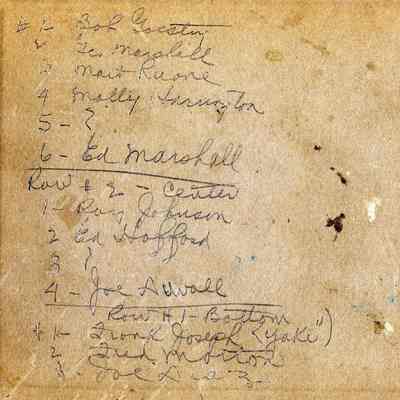 # 1- Bob
2 Geo Marshall
3 Mart Ruane
4 Molly Harrington
5 - ?
6 - Ed Marshall
Row # 2 - Center
1 - Roy Johnson
2 Ed Hafford
3 ?
4 - Joe
Row # 1 - Bottom
# 1- Frank Joseph ("Yake")
2 Fred Morton
3 - Joe